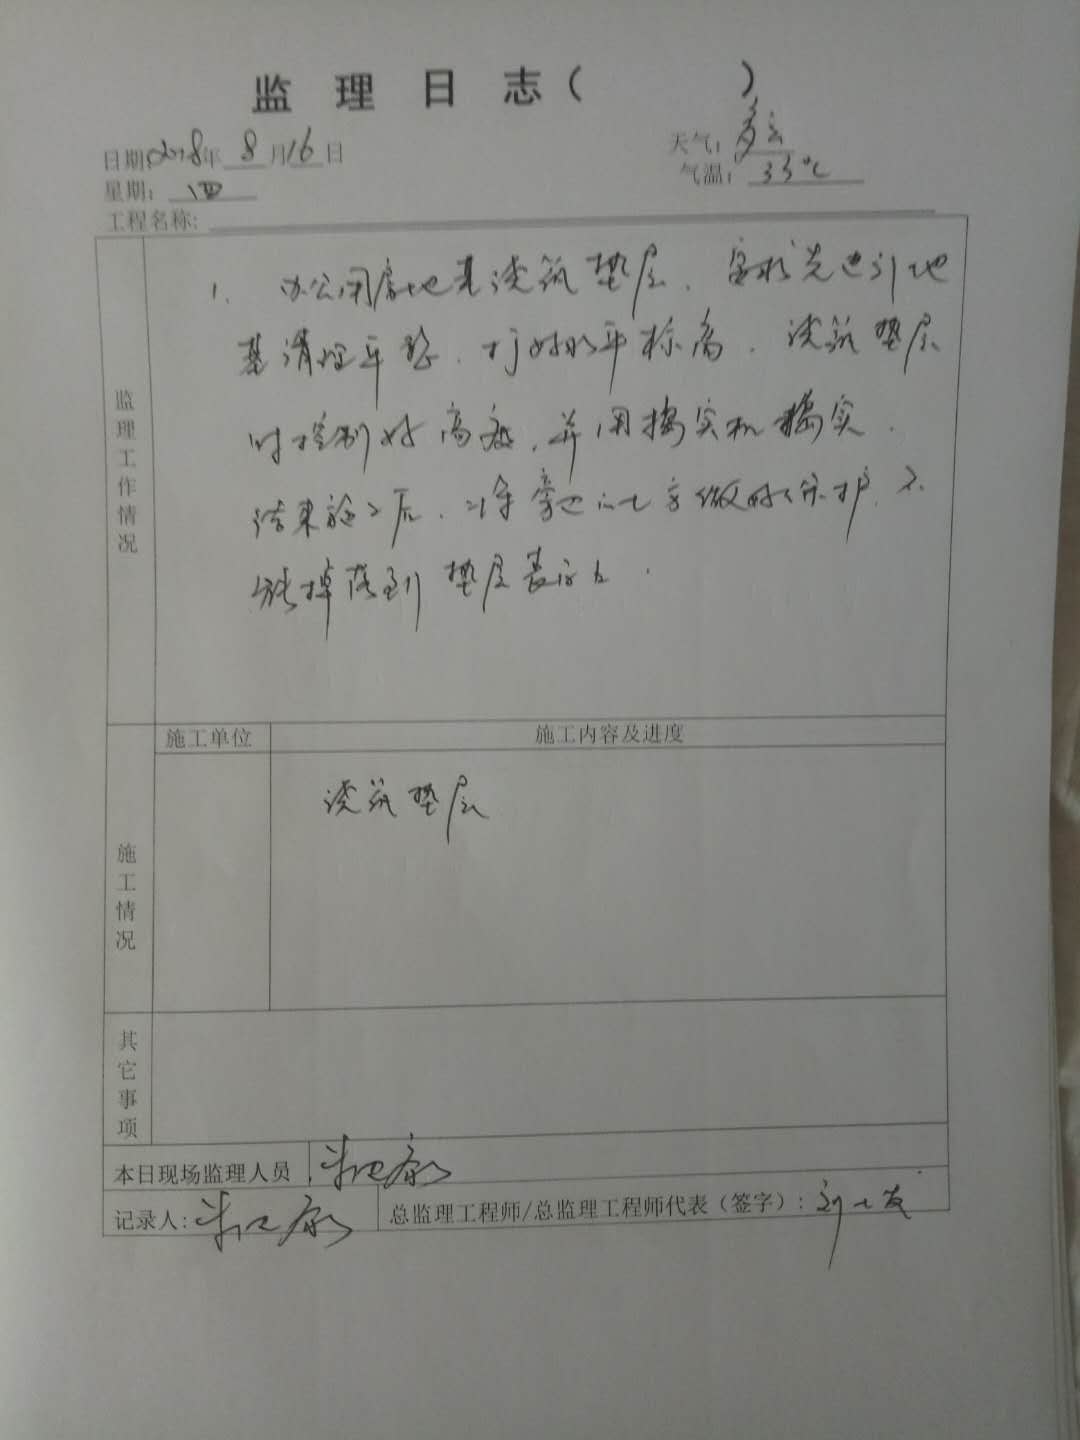 监理日志（ ）
日期：2018年 8 月 16 日
天气：多云
星期：四
气温：33℃
工程名称：
监理工作情况
1. 办公用房地基浇筑垫层，要求先进行地
基清理平整，打好水平标高，浇筑垫层
时控制好高度，并用捣实机捣实，
结束施工后，将旁边的土方做好保护，不
能掉落到垫层表面上。
施工情况
施工单位
施工内容及进度
浇筑垫层
其它事项
本日现场监理人员
记录人：
总监理工程师/总监理工程师代表（签字）：